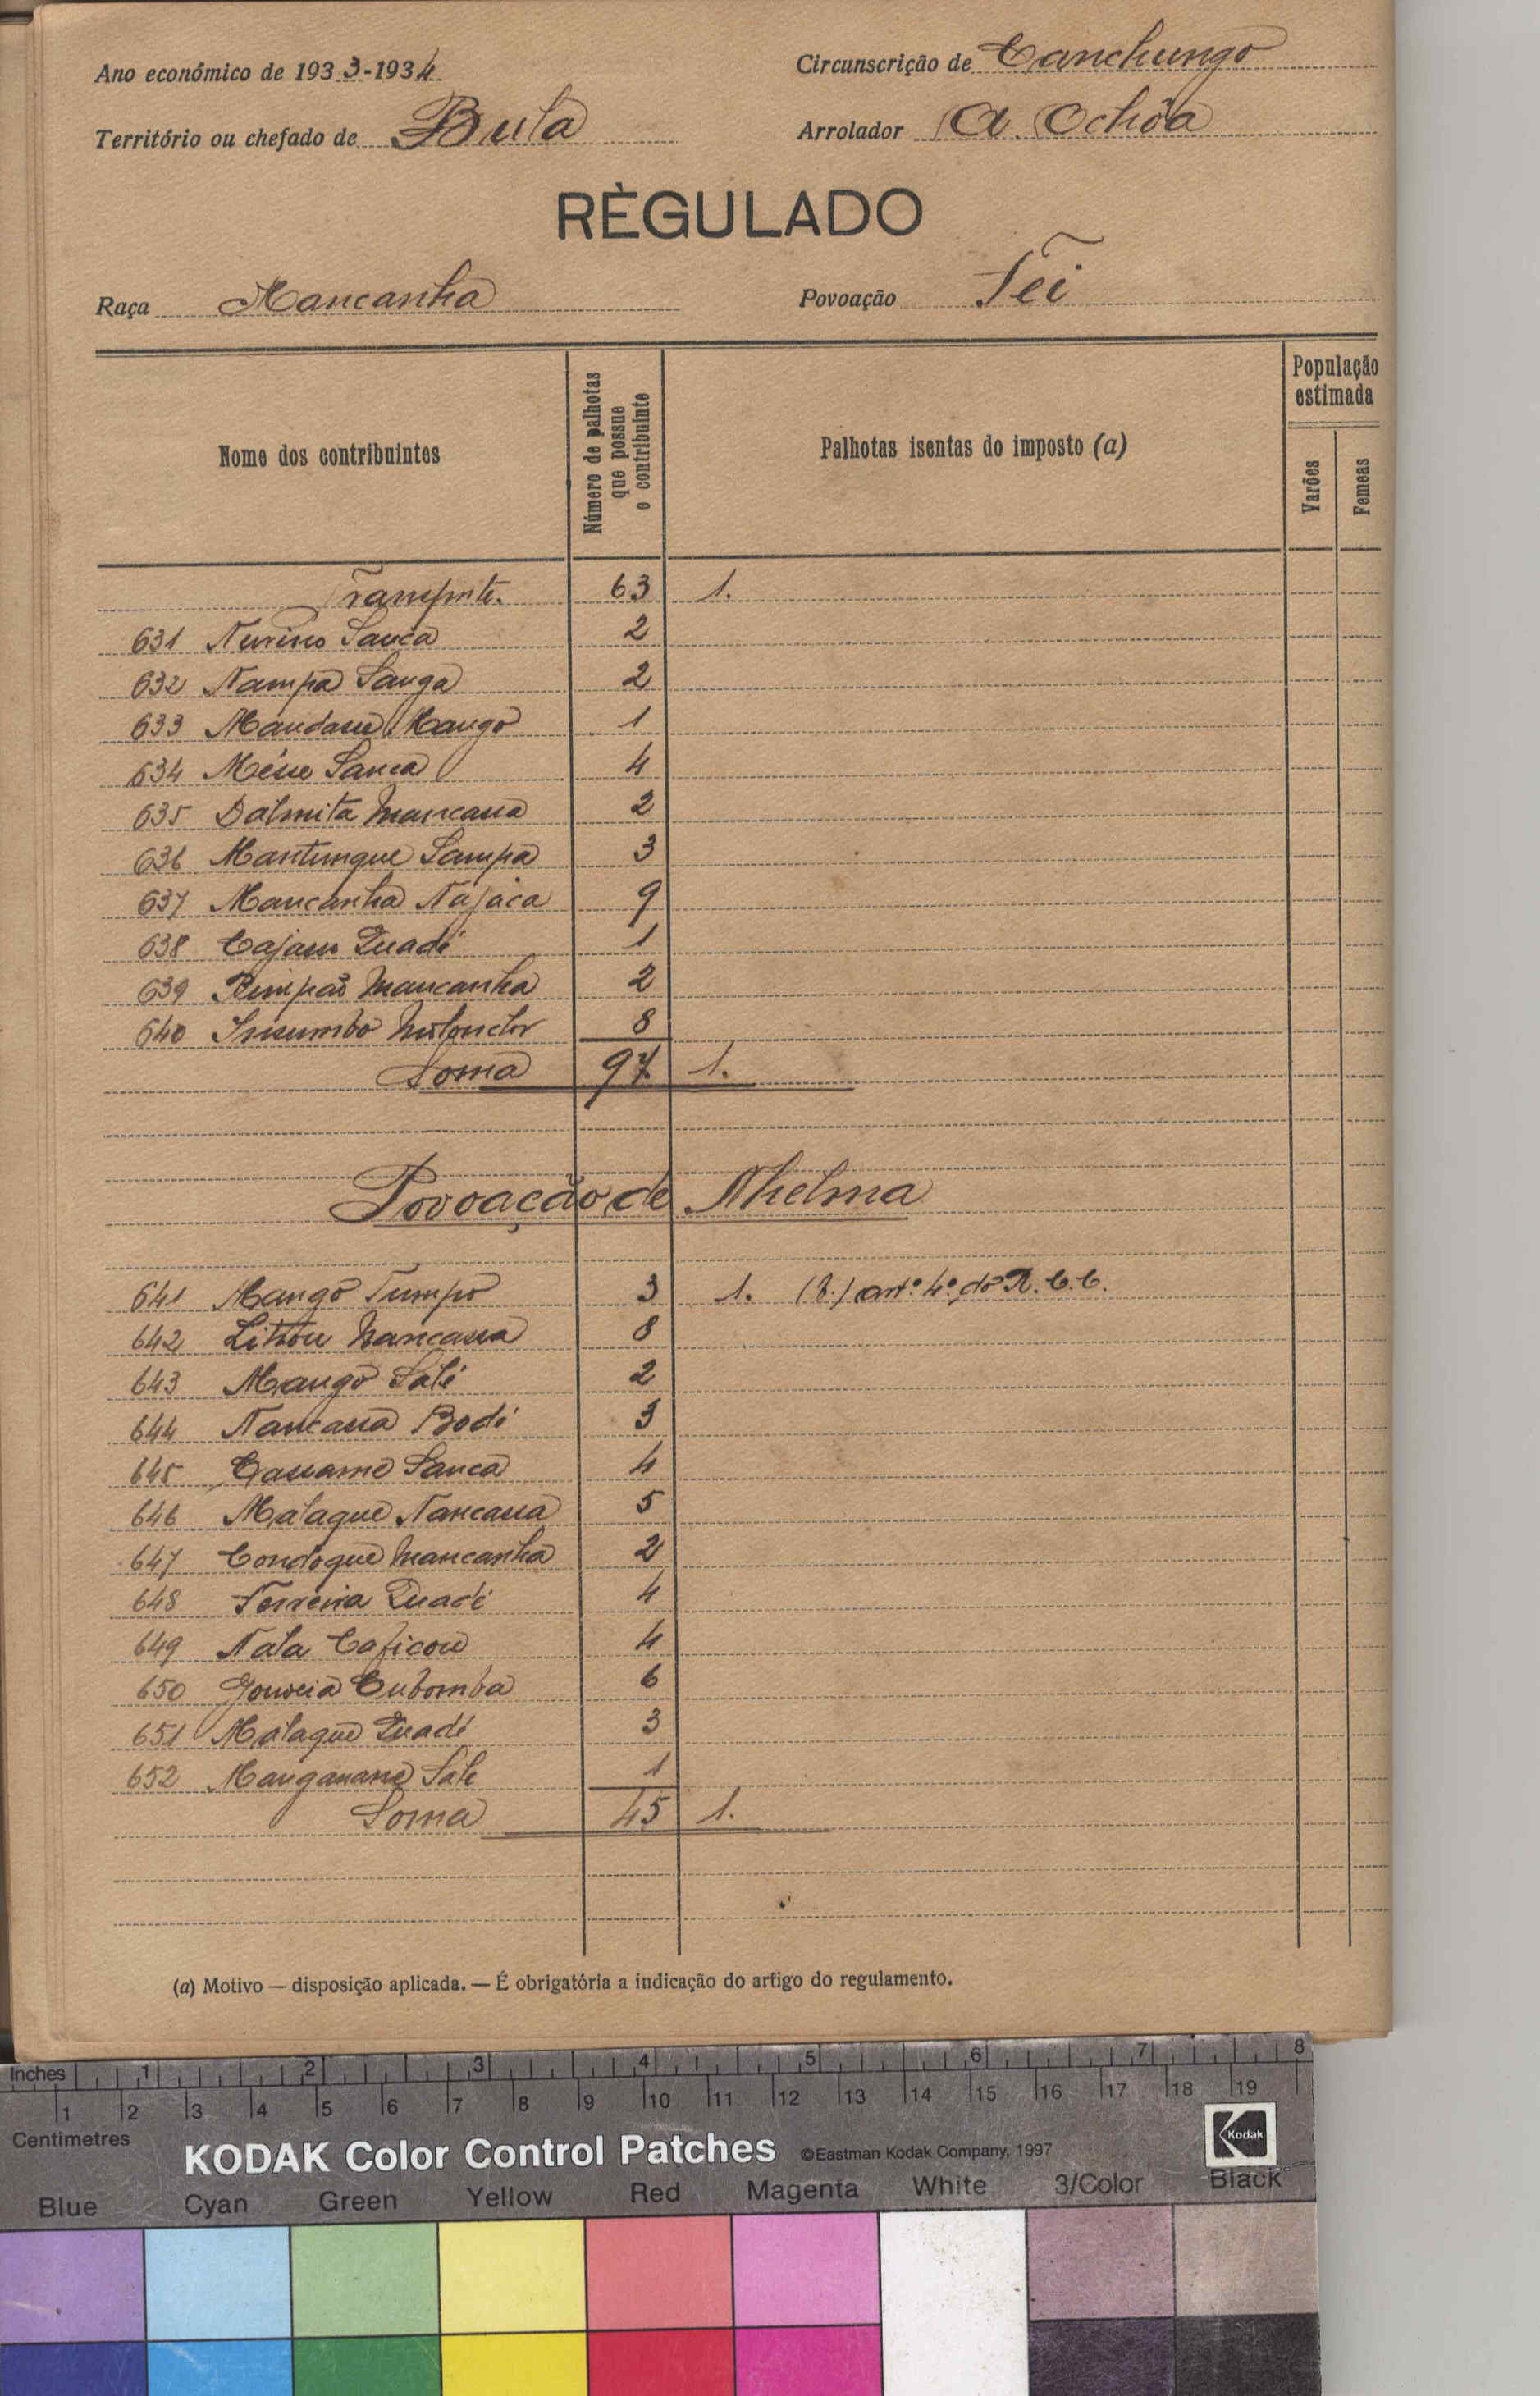 Ano económico de 1933-1934
Circunscrição de Canchungo
Território ou chefado de Bula
Arrolador A. Ochôa
RÈGULADO
Raça Mancanha
Povoação Tei
Nome dos contribuintes
Número de palhotas que possue o contribuinte
Palhotas isentas do imposto (a)
População estimada
Varões
Femeas
Transporte. 63 1.
631 Sanca 2
632 Nampa Sanga 2
633 Mango 1
634 Sanca 4
635 Dalmita Mancana 2
636 Mantungue Sampa 3
637 Mancanha Najáca 9
638 Quadé 1
639 Mancanha 2
640 8
Soma 97 1.
Povoação de Nhelma
641 Mango Tumpo 3 1. art.º 4.º do R. C. C.
642 Nancassa 8
643 Mango Salé 2
644 Nancassa Bodé 3
645 Cassame Sanca 4
646 Malaque Nancassa 5
647 Condoque Mancanha 2
648 Ferreira Quadé 4
649 Nala Caficou 4
650 Gouveia Cubomba 6
651 Malaque Quadé 3
652 Sale 1
Soma 45 1.
(a) Motivo — disposição aplicada. — É obrigatória a indicação do artigo do regulamento.
Inches 1 2 3 4 5 6 7 8
1 2 3 4 5 6 7 8 9 10 11 12 13 14 15 16 17 18 19
Centimetres
KODAK Color Control Patches ©Eastman Kodak Company, 1997 Kodak
Blue Cyan Green Yellow Red Magenta White 3/Color Black